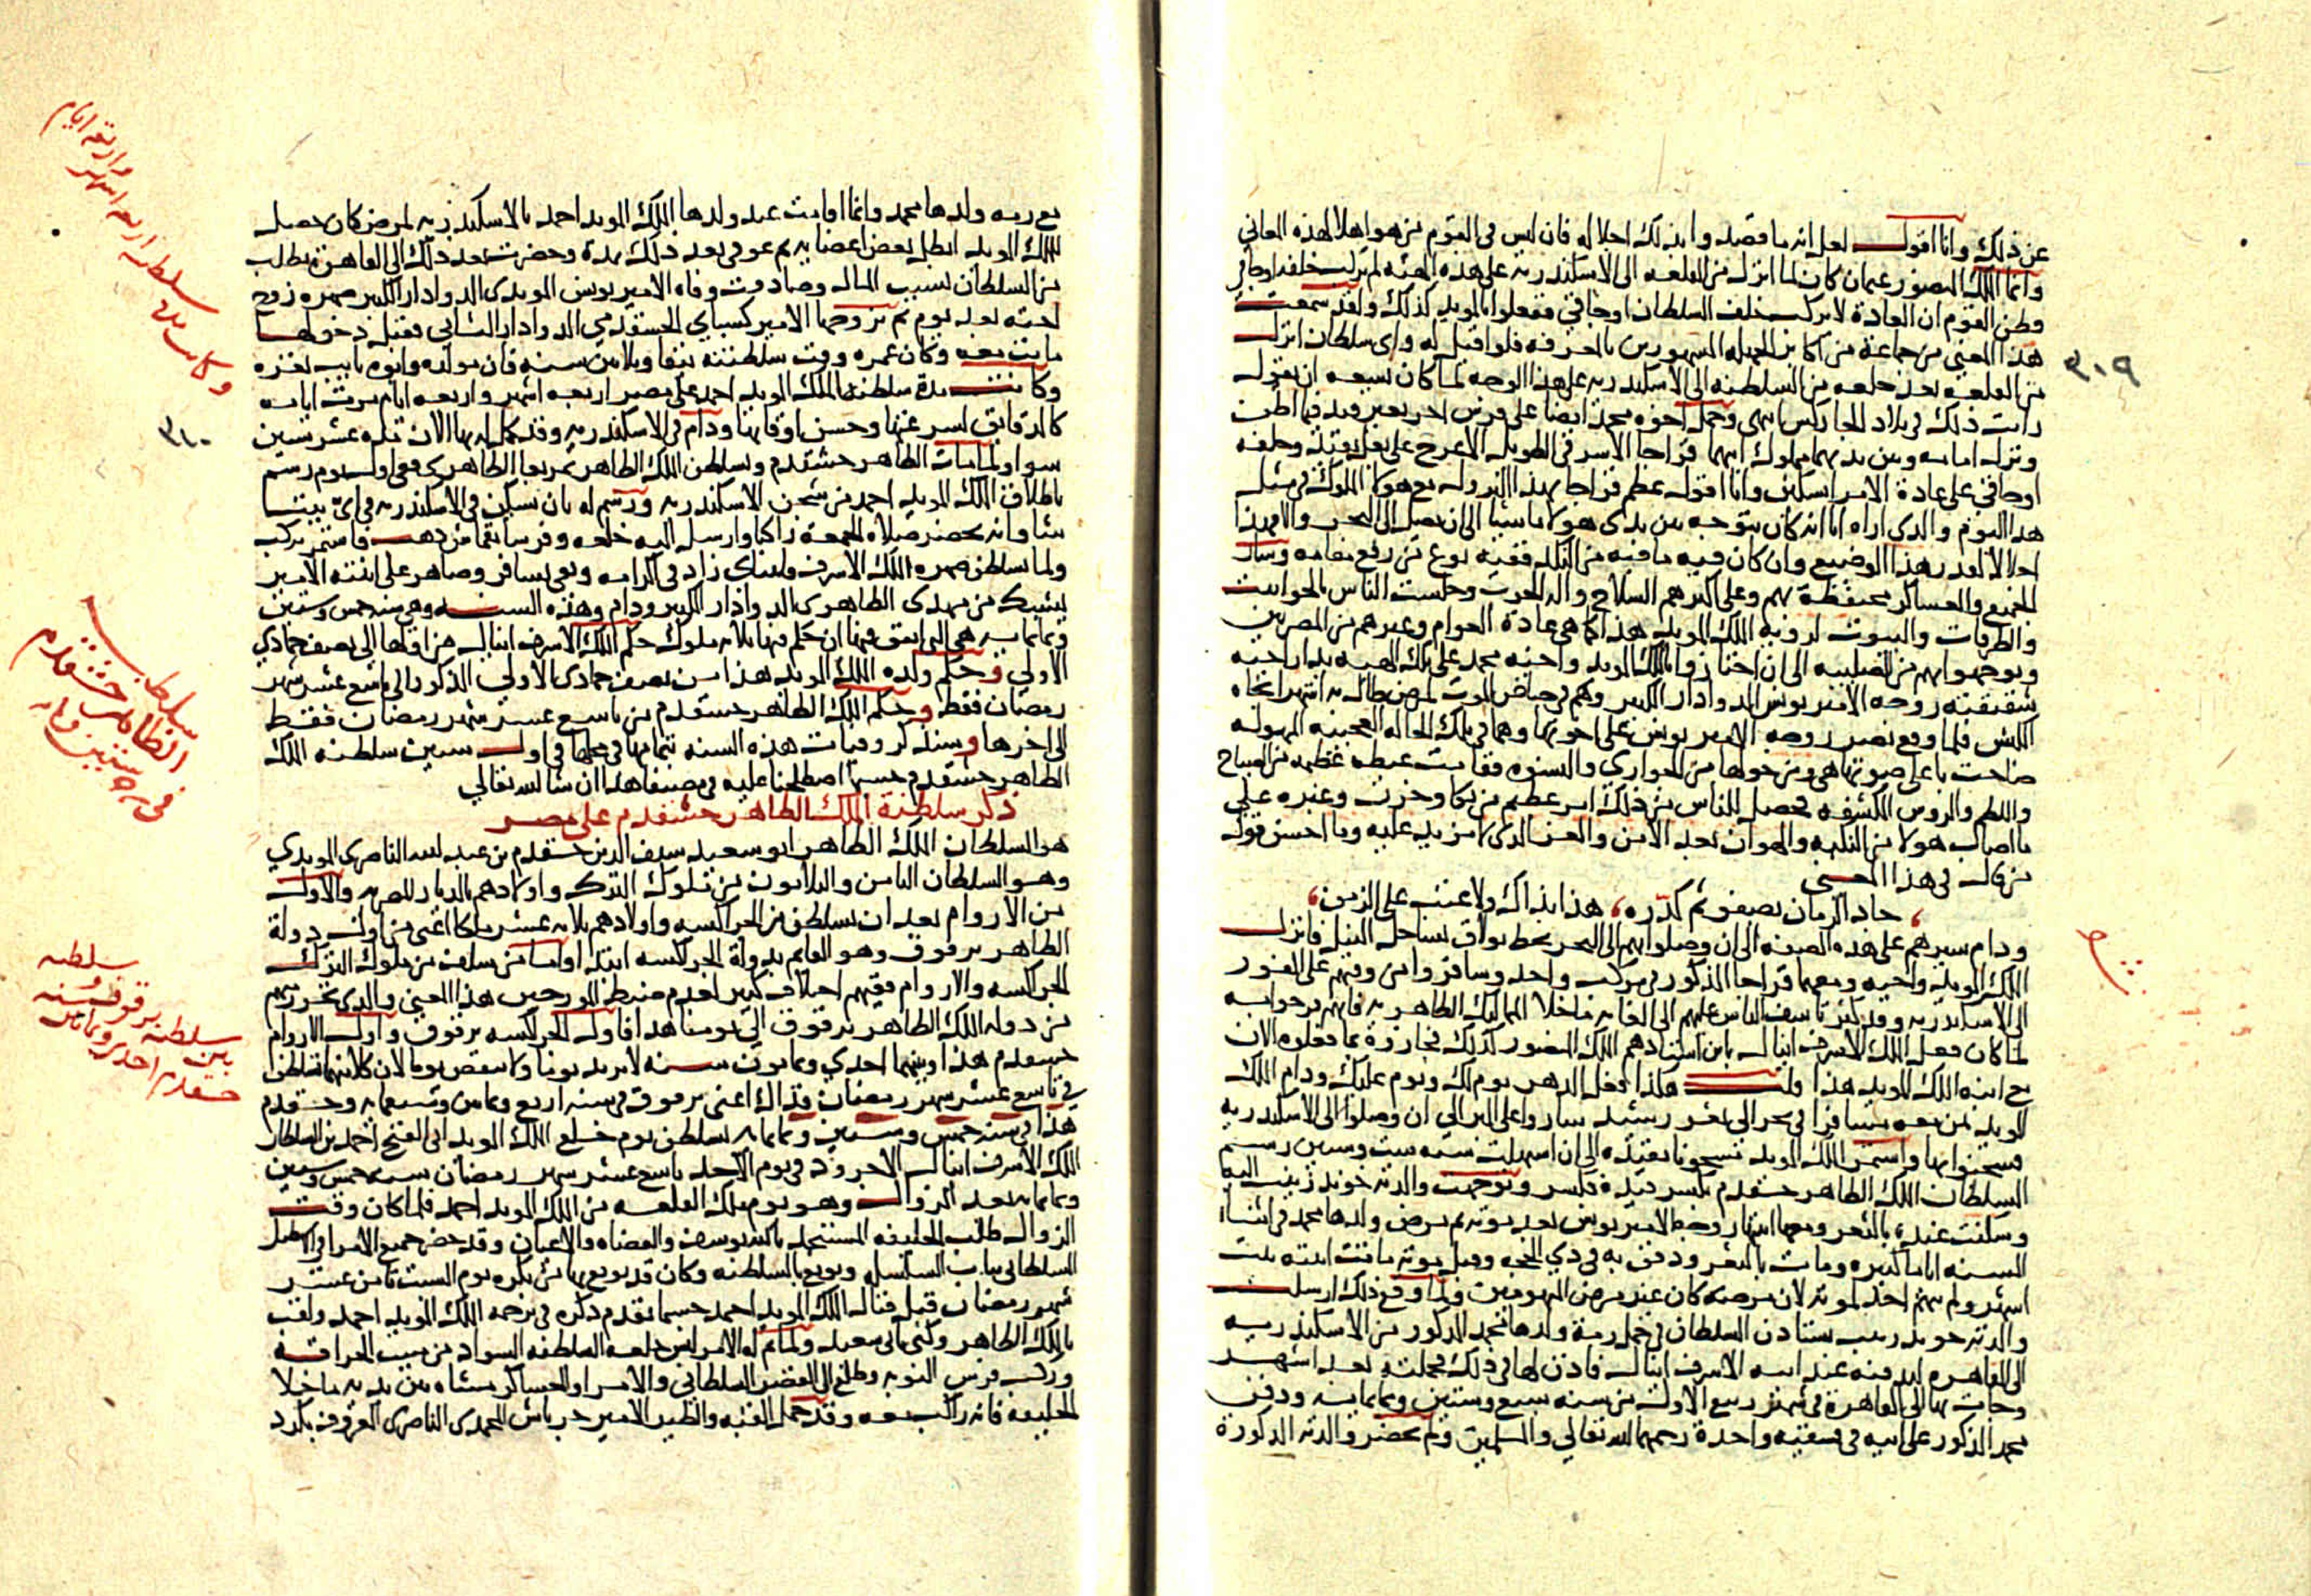 عن ذلك وانا اقول لعل انه ما قصد وا بذلك اجلاله فان ليس في القوم من هو اهلا لهذه المعاني
واما الملك المنصور عثمان كان لما انزل من القلعه الى الاسكندريه على هذه الهيئه لم يركب خلفه اوجاقي
وظن القوم ان العادة لا يركب خلف السلطان اوجاقي ففعلوا بالمويد كذلك ولقد سمعت
هذا المعنى من جماعة من اكابر الجهله المشهورين بالمعرفه فلو اقيل له واي سلطان انزل
من القلعه بعد خلعه من السلطنه الى الاسكندريه على هذا الوجه لما كان يسعه ان يقول
رايت ذلك في بلاد الجاركس انتهى وحمل اخوه محمد ايضا على فرس اخر بغير قيد فيما اظن
ونزل امامه وبين يديهما مملوك ابيهما قراجا الاشرفي الطويل الاعرج على بغل بقيد وخلفه
اوجاقي على عادة الامرا بسكين وانا اقول عظم قراجا بهذا النزول مع هولا الملوك في مثل
هذا اليوم والذي اراه انا انه كان يتوجه بين يدي هولا ماشيا الى ان يصل الى البحر والامر هذا
اجلالا لقدر هذا الوضيع وان كان فيه ما فيه من النكد ففيه نوع من رفع مقامه وسار
الجميع والعساكر محتفظة بهم وعلى اكثرهم السلاح والة الحرب وجلست الناس بالحوانيت
والطرقات والبيوت لروية الملك المويد هذا كما هي عادة العوام وغيرهم من المصريين
وتوجهوا بهم من الصليبه الى ان اجتازوا بالملك المويد واخيه محمد على تلك الهيئه بدار اخته
شقيقته زوجه الامير يونس الدوادار الكبير وهم في حياض الموت لمرض طال به اشهرا تجاه
الكبش فلما وقع بصر زوجه الامير يونس على اخويها وهما في تلك الحاله العجيبه المهوله
صاحت باعلى صوتها هي ومن حولها من الجواري والنسوه فقامت عيطه عظيمه من الصياح
واللطم والروس المكشفه فحصل للناس من ذلك امر عظيم من بكا وحزن وعبره على
ما اصاب هولا من النكبه والهوان بعد الامن والعز الذي لا مزيد عليه وما احسن قول
من قال في هذا المعنى
حاد الزمان بصفو ثم كدره ، هذا بذاك ولا عتب على الزمن
ودام سيرهم على هذه الصفه الى ان وصلوا بهم الى البحر بخط بولاق بساحل النيل فانزل
الملك المويد واخيه ومعهما قراجا المذكور في مركب واحد وسافروا من وقتهم على الفور
الى الاسكندريه وقد كثر تاسف الناس عليهم الى الغايه ما خلا المماليك الظاهريه فانهم فرحوا به
لما كان فعل الملك الاشرف اينال بابن استادهم الملك المنصور كذلك فجازوه بما فعلوه الان
مع ابنه الملك المويد هذا قلت هكذا فعل الدهر يوم لك ويوم عليك ودام الملك
المويد بمن معه مسافرا في بحر الى ثغر رشيد ساروا على البر الى ان وصلوا الى الاسكندريه
فسجنوا بها واستمر الملك المويد مسجونا بقيده الى ان استهلت سنه ست وستين رسم
السلطان الملك الظاهر خشقدم بكسر قيده فكسر وتوجهت والدته خوند زينب اليه
وسكنت عنده بالثغر ومعها ابنتها زوجه الامير يونس بعد موته ثم مرض ولدها محمد في اثناء
السنه اياما كثيره ومات بالثغر ودفن به في ذي الحجه وقبل موته ماتت ابنته بنت
اشهر ولم يهتم احد لموته لان مرضه كان غير مرض المهومين ولما وقع ذلك ارسلت
والدته خوند زينب تستاذن السلطان في حمل رمة ولدها محمد المذكور من الاسكندريه
الى القاهره لدفنه عند ابيه الاشرف اينال فاذن لها في ذلك فحملته بعد اشهر
وجات بها الى القاهرة في شهر ربيع الاول من سنه سبع وستين وثمانمايه ودفن
محمد المذكور على ابيه في فسقيه واحدة رحمهما الله تعالى والمسلمين ولم تحضر والدته المذكورة
٣١٩
مع رمه ولدها محمد وانما اقامت عند ولدها الملك المويد احمد بالاسكندريه لمرض كان حصل
للملك المويد ابطل بعض اعضايه ثم عوفي بعد ذلك بمدة وحضرت بعد ذلك الى القاهرة بطلب
من السلطان بسبب المال وصادفت وفاه الامير يونس المويدى الدوادار الكبير صهره زوج
ابنته بعد يوم ثم تزوجها الامير كسباي الخشقدمي الدوادار الثاني فقبل دخولها
ماتت معه وكان عمره وقت سلطنته نيفا وثلاثين سنه فان مولده وابوه نايب بغزه
وكانت مدة سلطنه الملك المويد احمد على مصر اربعه اشهر واربعه ايام مرت ايامه
كالدقايق لسرعتها وحسن اوقاتها ودام في الاسكندريه وقد كمل له بها الان ثلاثه عشر سنين
سوا ولما مات الظاهر خشقدم وتسلطن الملك الظاهر تمربغا الظاهرى ففي اول يوم رسم
باطلاق الملك المويد احمد من سجن الاسكندريه ورسم له بان يسكن في الاسكندريه في اي بيت شا
شا وانه يحضر صلاة الجمعه راكبا وارسل اليه خلعه وفرسا بقماش ذهب فاستمر يركب
ولما تسلطن صهره الملك الاشرف قايتباي زاد في اكرامه وبقي يسافر وصاهر على ابنته الامير
يشبك من مهدى الظاهرى الدوادار الكبير ودام وهذه السنه وهي سنه خمس وستين
وثمانمايه هي التى اتفق فيها ان حكم فيها ثلاثه ملوك حكم الملك الاشرف اينال من اولها الى نصف جمادي
الاولي وحكم ولده الملك المويد هذا من نصف جمادى الاولي المذكور الى تاسع عشر شهر
رمضان فقط وحكم الملك الظاهر خشقدم من تاسع عشر شهر رمضان فقط
الى اخرها وسنذكر وفيات هذه السنه بتمامها في محلها في اول سنين سلطنه الملك
الظاهر خشقدم حسبما اصطلحنا عليه في مصنفنا هذا ان شا الله تعالي
ذكر سلطنة الملك الظاهر خشقدم على مصر
هو السلطان الملك الظاهر ابو سعيد سيف الدين خشقدم بن عبد الله الناصرى المويدي
وهو السلطان الثامن والثلاثون من ملوك الترك واولادهم بالديار المصريه والاول
من الاروام بعد ان تسلطن من الجراكسه واولادهم ثلاثه عشر ملكا اعني من اول دولة
الظاهر برقوق وهو القايم بدولة الجراكسه ابتدا واما من سلف من ملوك الترك
الجراكسه والاروام ففيهم اختلاف كبير لعدم ضبط المورخين هذا المعنى والذي تحرر منهم
من دوله الملك الظاهر برقوق الى يومنا هذا فاول الجراكسه برقوق واول الاروام
خشقدم هذا وبينهما احدي وثمانون سنه لا يزيد يوما ولا ينقص يوما لان كلا منهما تسلطن
في تاسع عشر شهر رمضان فذاك اعني برقوق في سنه اربع وثمانين وسبعمايه وخشقدم
هذا في سنه خمس وستين وثمانمايه تسلطن يوم خلع الملك المويد ابى الفتح احمد بن السلطان
الملك الاشرف اينال الاجرود في يوم الاحد تاسع عشر شهر رمضان سنه خمس وستين
وثمانمايه بعد الزوال وهو يوم ملك القلعه من الملك المويد احمد فلما كان وقت
الزوال طلب الخليفه المستنجد بالله يوسف والقضاه والاعيان وقد حضر جميع الامرا في الاسطبل
السلطاني بباب السلسله وبويع بالسلطنه وكان قد بويع بها من بكره يوم السبت ثامن عشر
شهر رمضان قبل قتال الملك المويد احمد حسبما تقدم ذكره في ترجمه الملك المويد احمد ولقب
بالملك الظاهر وكني بابي سعيد ولما تم له الامر لبس خلعه السلطنه السواد من مبيت الحراقه
وركب فرس النوبه وطلع الى القصر السلطاني والامرا والعساكر مشاه بين يديه ما خلا
الخليفه فانه راكب معه وقد حمل القبه والطير الامير جرباش المحمدى الناصرى المعروف بكرد
وكانت مدة سلطنته اربعه اشهر
واربعه ايام
٣٢٠
سلطان
الظاهر خشقدم
في ٨٦٥ خمس وستين وثمانمايه
سلطنه
سلطنه برقوق سنه
بين
خشقدم احدى وثمانين